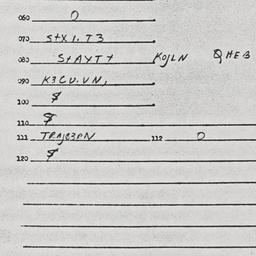 060 0
070 S+X1.T3
080 S+AYT+ KOJLN QHEB
090 K3CU.VN,
100 $
110 $
111 TRAJC3PN 112 0
120 $